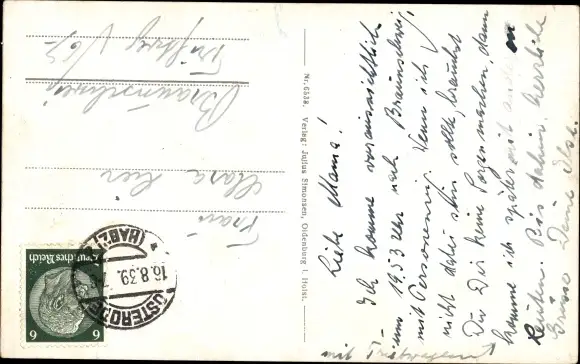 Liebe Mama!
Ich komme voraussichtlich
um 19.53 Uhr nach Braunschweig
mit Personenzug. Wenn ich
nicht dabei sein sollte, brauchst
Du Dir keine Sorgen machen, dann
komme ich später mit anderen
Leuten. Bis dahin herzliche
Grüsse Deine Ilse.
mit
Nr. 6538. Verlag: Julius Simonsen, Oldenburg i. Holst.
Frau
Braunschweig
OSTERODE
(HARZ)
16.8.39.
Deutsches Reich
6 6